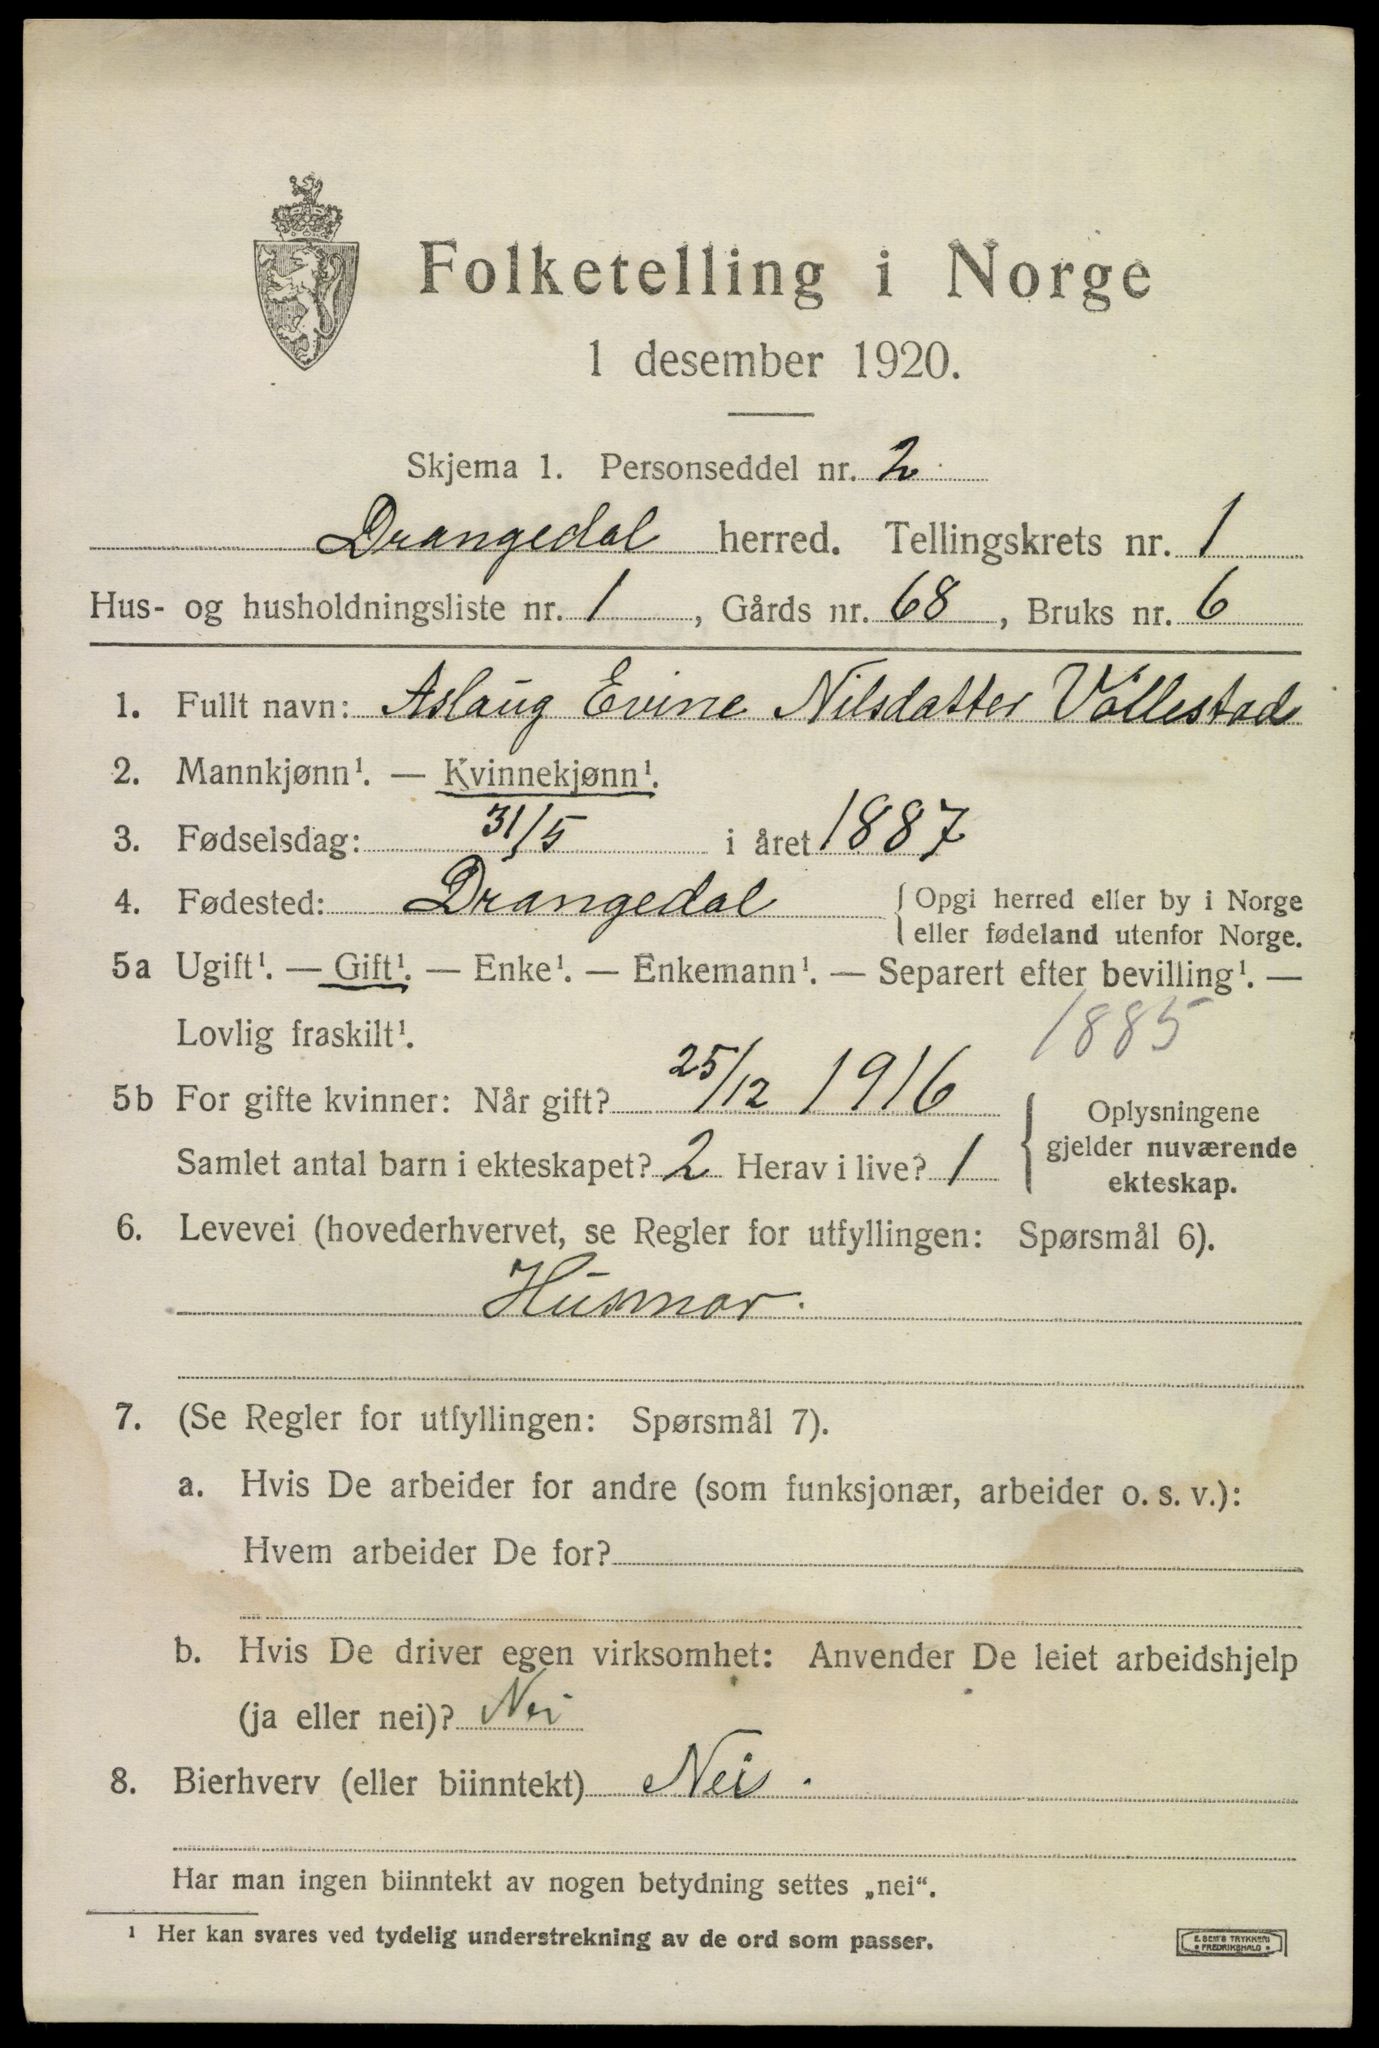 Folketelling i Norge
1 desember 1920.
Skjema 1. Personseddel nr. 2
Drangedal herred. Tellingskrets nr. 1
Hus- og husholdningsliste nr. 1, Gårds nr. 68, Bruks nr. 6
1. Fullt navn: Aslaug Evine Nilsdatter Vollestad
2. Mannkjønn¹. — Kvinnekjønn¹.
3. Fødselsdag: 31/5 i året 1887
4. Fødested: Drangedal { Opgi herred eller by i Norge
eller fødeland utenfor Norge.
5a Ugift¹. — Gift¹. — Enke¹. — Enkemann¹. — Separert efter bevilling¹. —
Lovlig fraskilt¹. 1885
5b For gifte kvinner: Når gift? 25/12 1916
Samlet antal barn i ekteskapet? 2 Herav i live? 1
{ Oplysningene
gjelder nuværende
ekteskap.
6. Levevei (hovederhvervet, se Regler for utfyllingen: Spørsmål 6).
Husmor.
7. (Se Regler for utfyllingen: Spørsmål 7).
a. Hvis De arbeider for andre (som funksjonær, arbeider o. s. v.):
Hvem arbeider De for?
b. Hvis De driver egen virksomhet: Anvender De leiet arbeidshjelp
(ja eller nei)? Nei
8. Bierhverv (eller biinntekt) Nei.
Har man ingen biinntekt av nogen betydning settes „nei“.
¹ Her kan svares ved tydelig understrekning av de ord som passer.
E. SEM'S TRYKKERI
FREDRIKSHALD